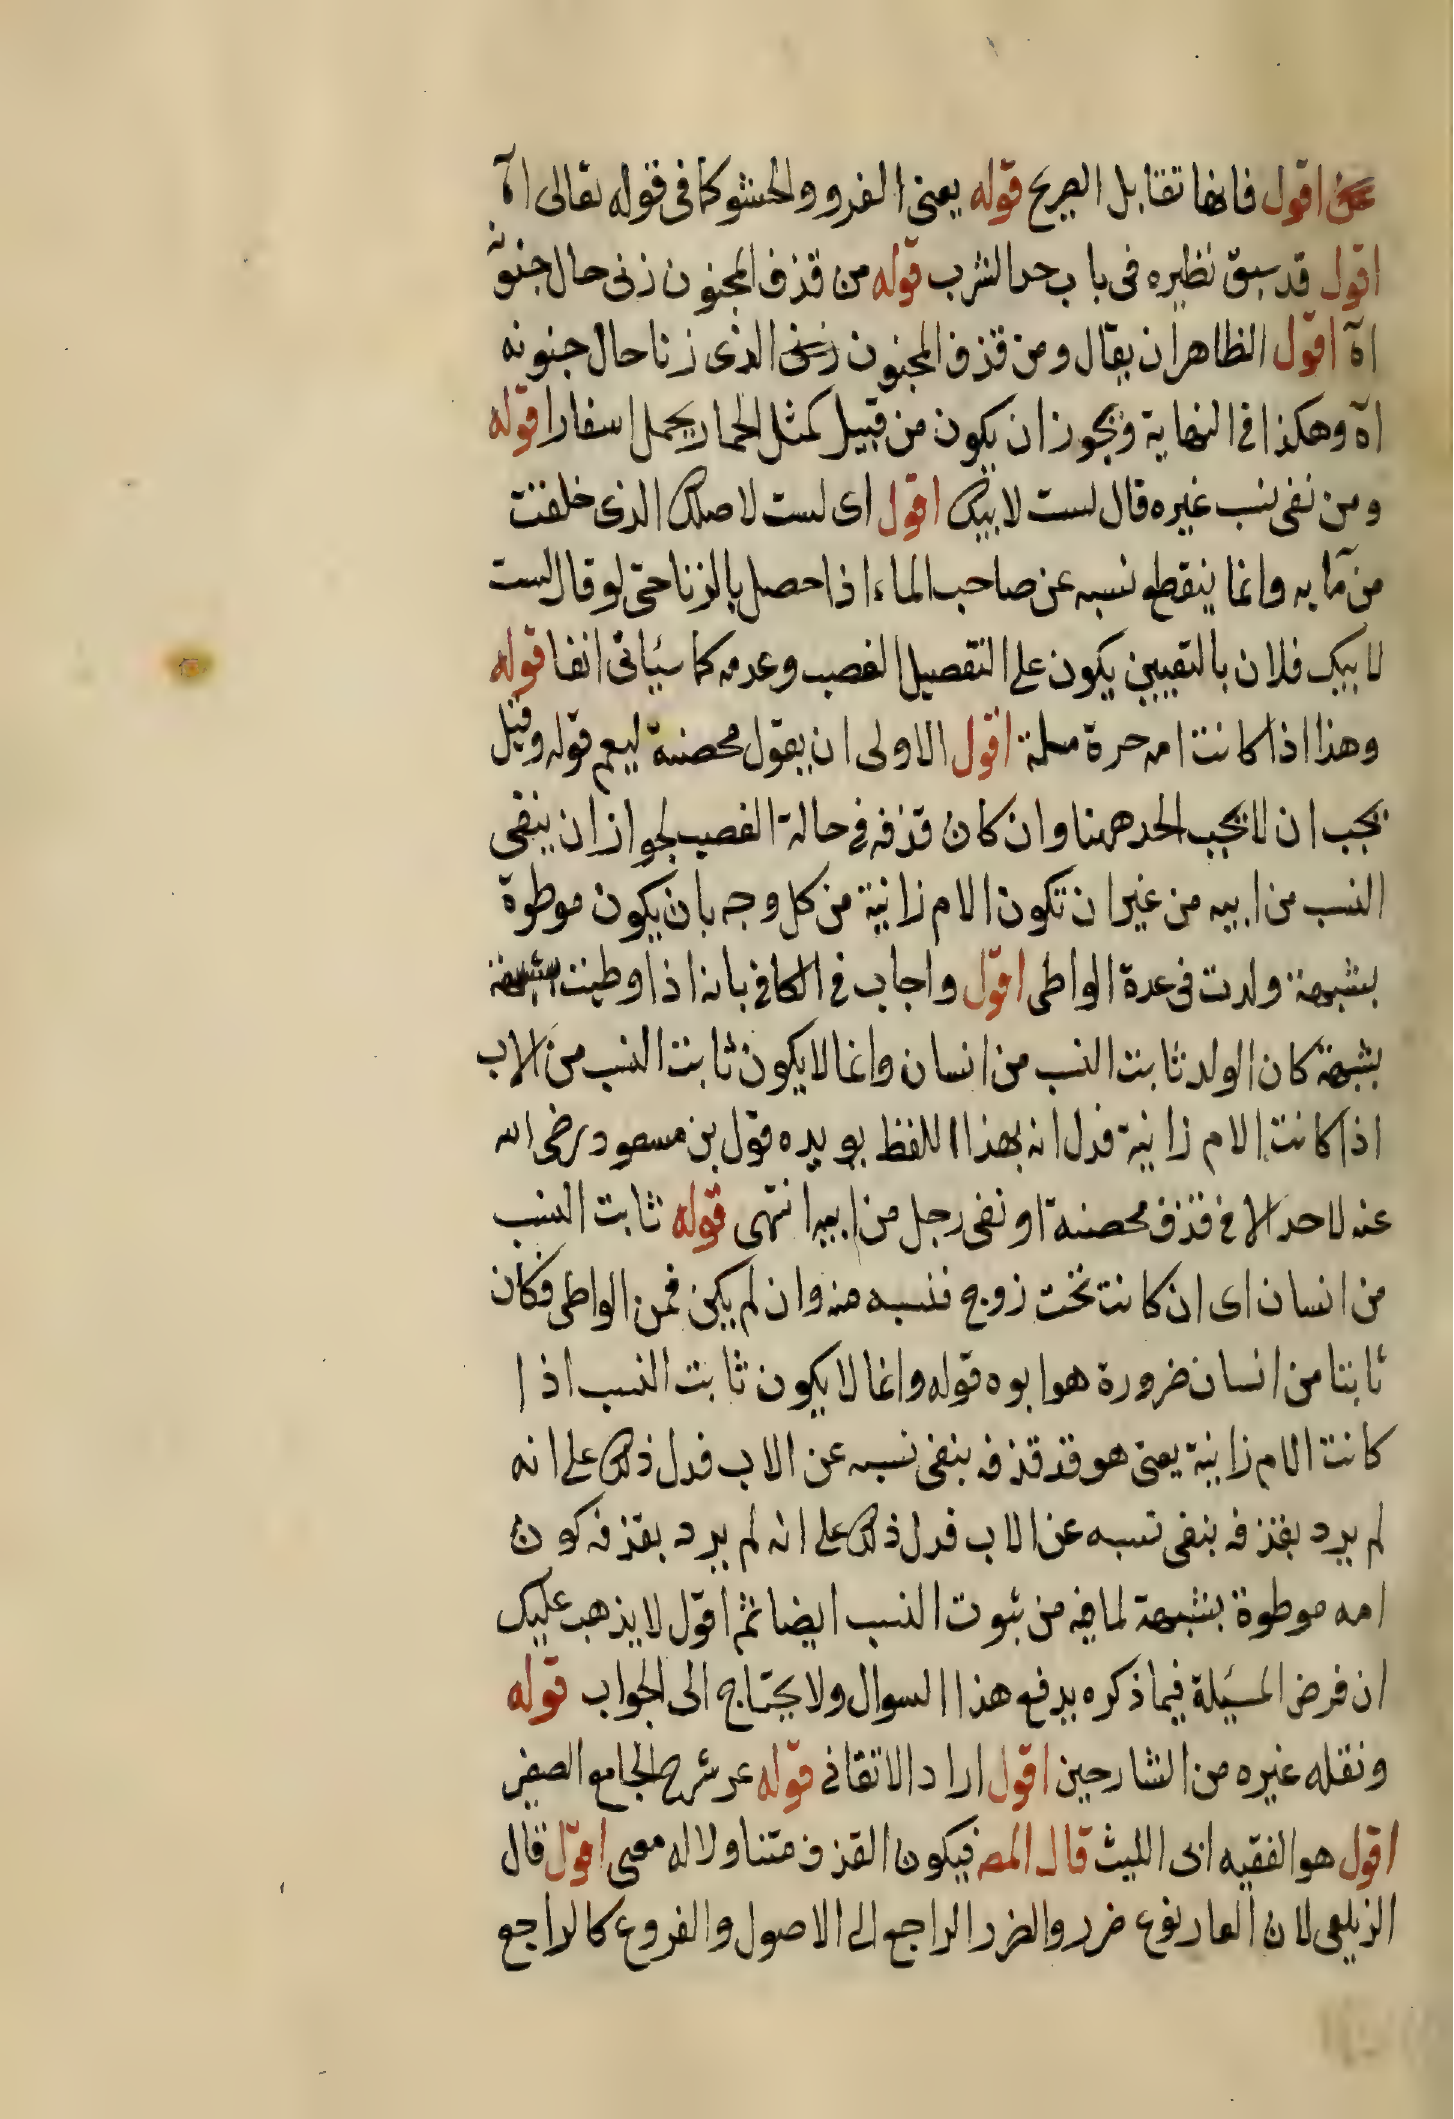 اقول فانها تقابل الصريح قوله يعنى الفرو والحشو كما فى قوله تعالى اه
اقول قد سبق نظيره فى باب حد الشرب قوله من قذف المجنون زنى حال جنونه
اه اقول الظاهر ان يقال ومن قذف المجنون الذى زنا حال جنونه
اه وهكذا فى النهاية ويجوز ان يكون من قبيل كمثل الحمار يحمل اسفارا قوله
ومن نفى نسب غيره قال لست لابيك اقول اى لست لاصلك الذى خلقت
من مآيه وانما ينقطع نسبه عن صاحب الماء اذا حصل بالزنا حتى لو قال لست
لابيك فلان بالتعيين يكون على التفصيل الغضب وعدمه كما سيأتى انفا قوله
وهذا اذا كانت امه حرة مسلمة اقول الاولى ان يقول محصنة ليعم قوله وقيل
يجب ان لا يجب الحد ههنا وان كان قذفه فى حالة الغضب لجواز ان ينفى
النسب من ابيه من غير ان تكون الام زانية من كل وجه بان يكون موطوة
بشبهة ولدت فى عدة الواطى اقول واجاب فى الكافى بانه اذا وطيت
بشبهة كان الولد ثابت النسب من انسان وانما لا يكون ثابت النسب من الاب
اذا كانت الام زانية فدل انه بهذا اللفظ يويده قول بن مسعود رضى الله
عنه لا حد الا فى قذف محصنة او نفى رجل من ابيه انتهى قوله ثابت النسب
من انسان اى ان كانت تحت زوج فنسبه منه وان لم يكن فمن الواطى فكان
ثابتا من انسان ضرورة هو ابوه قوله وانما لا يكون ثابت النسب اذا
كانت الام زانية يعنى هو قد قذفه بنفى نسبه عن الاب فدل ذلك على انه
لم يرد بقذفه بنفى نسبه عن الاب فدل ذلك على انه لم يرد بقذفه كون
امه موطوة بشبهة لما فيه من ثبوت النسب ايضا ثم اقول لا يذهب عليك
ان فرض المسئلة فيما ذكره يدفع هذا السوال ولا يحتاج الى الجواب قوله
ونقله غيره من الشارحين اقول اراد الاتقانى قوله عن شرح الجامع الصغير
اقول هو الفقيه ابى الليث قال المص فيكون القذف متناولا له معنى اقول قال
الزيلعى لان العار نوع ضرر والضرر الراجع الى الاصول والفروع كالراجع